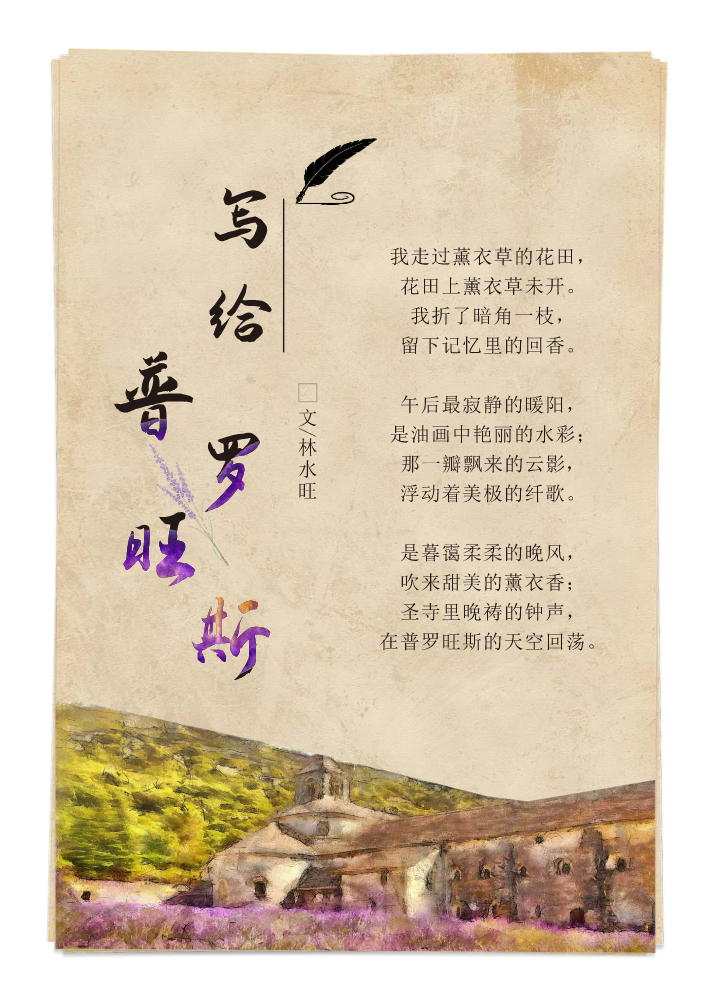 写给普罗旺斯
文/林水旺
我走过薰衣草的花田，
花田上薰衣草未开。
我折了暗角一枝，
留下记忆里的回香。
午后最寂静的暖阳，
是油画中艳丽的水彩；
那一瓣飘来的云影，
浮动着美极的纤歌。
是暮霭柔柔的晚风，
吹来甜美的薰衣香；
圣寺里晚祷的钟声，
在普罗旺斯的天空回荡。